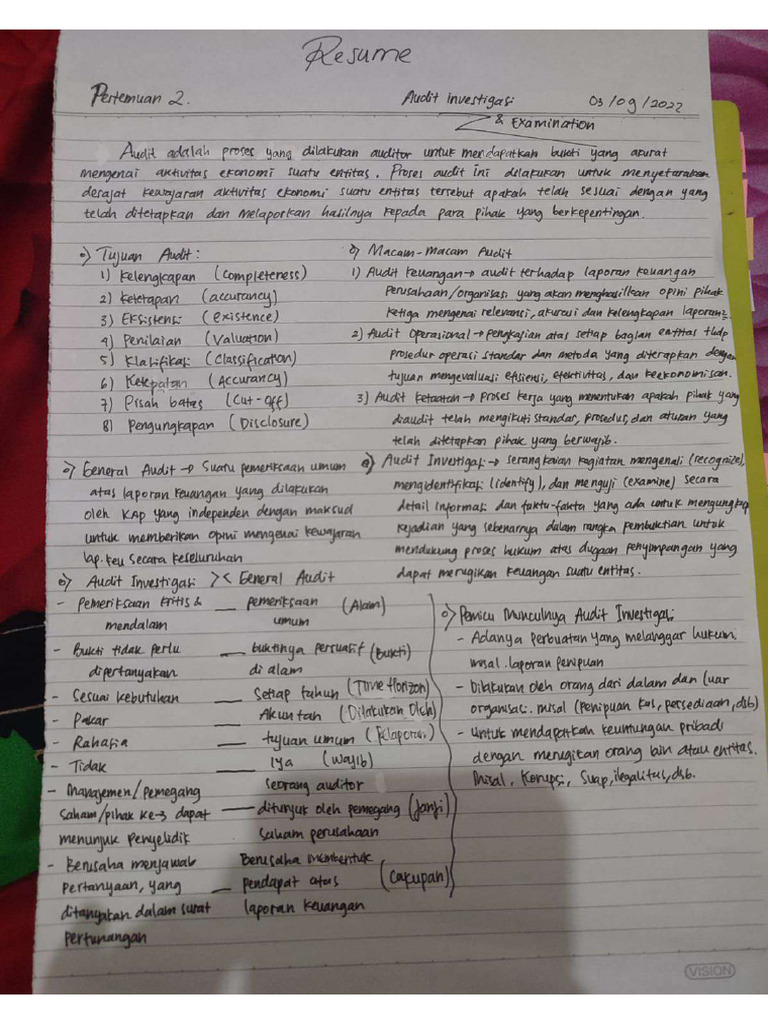 Resume
Pertemuan 2.
Audit investigasi
& Examination
03/09/2022
Audit adalah proses yang dilakukan auditor untuk mendapatkan bukti yang akurat
mengenai aktivitas ekonomi suatu entitas. Proses audit ini dilakukan untuk menyetarakan
desajat kewajaran aktivitas ekonomi suatu entitas tersebut apakah telah sesuai dengan yang
telah ditetapkan dan melaporkan hasilnya kepada para pihak yang berkepentingan.
o) Tujuan Audit :
1) Kelengkapan (completeness)
2) Ketetapan (accurancy)
3) Eksistensi (existence)
4) Penilaian (Valuation)
5) Klasifikasi (Classification)
6) Ketepatan (Accurancy)
7) Pisah batas (Cut-Off)
8) Pengungkapan (Disclosure)
o) Macam-Macam Audit
1) Audit keuangan → audit terhadap laporan keuangan
perusahaan/organisasi yang akan menghasilkan opini pihak
ketiga mengenai relevansi, akurasi dan kelengkapan laporan2.
2) Audit Operasional → pengkajian atas setiap bagian entitas thdp
prosedur operasi standar dan metoda yang diterapkan dengan
tujuan mengevaluasi efisiensi, efektivitas, dan keekonomisan.
3) Audit ketaatan → proses kerja yang menentukan apakah pihak yang
diaudit telah mengikuti standar, prosedur, dan aturan yang
telah ditetapkan pihak yang berwajib.
o) General Audit → Suatu pemeriksaan umum
atas laporan keuangan yang dilakukan
oleh KAP yang independen dengan maksud
untuk memberikan opini mengenai kewajaran
lap. keu secara keseluruhan
o) Audit Investigasi → serangkaian kegiatan mengenali (recognize),
mengidentifikasi (identify), dan menguji (examine) secara
detail informasi dan fakta-fakta yang ada untuk mengungkap
kejadian yang sebenarnya dalam rangka pembuktian untuk
mendukung proses hukum atas dugaan penyimpangan yang
dapat merugikan keuangan suatu entitas.
o) Audit Investigasi >< General Audit
- Pemeriksaan kritis & — pemeriksaan (Alam)
mendalam umum
- Bukti tidak perlu — buktinya persuasif (Bukti)
dipertanyakan di alam
- Sesuai kebutuhan — Setiap tahun (Time Horizon)
- Pakar — Akuntan (Dilakukan Oleh)
- Rahasia — tujuan umum (Pelaporan)
- Tidak — Iya (Wajib)
- Manajemen/pemegang seorang auditor
saham/pihak ke-3 dapat — ditunjuk oleh pemegang (Janji)
menunjuk penyelidik saham perusahaan
- Berusaha menjawab Berusaha membentuk
pertanyaan, yang — pendapat atas (Cakupan)
ditanyakan dalam surat laporan keuangan
pertunangan
o) Pemicu Munculnya Audit Investigasi:
- Adanya perbuatan yang melanggar hukum.
misal. laporan penipuan
- Dilakukan oleh orang dari dalam dan luar
organisasi. misal (penipuan kas, persediaan, dsb)
- untuk mendapatkan keuntungan pribadi
dengan merugikan orang lain atau entitas.
Misal. Korupsi, Suap, ilegalitas, dsb.
VISION